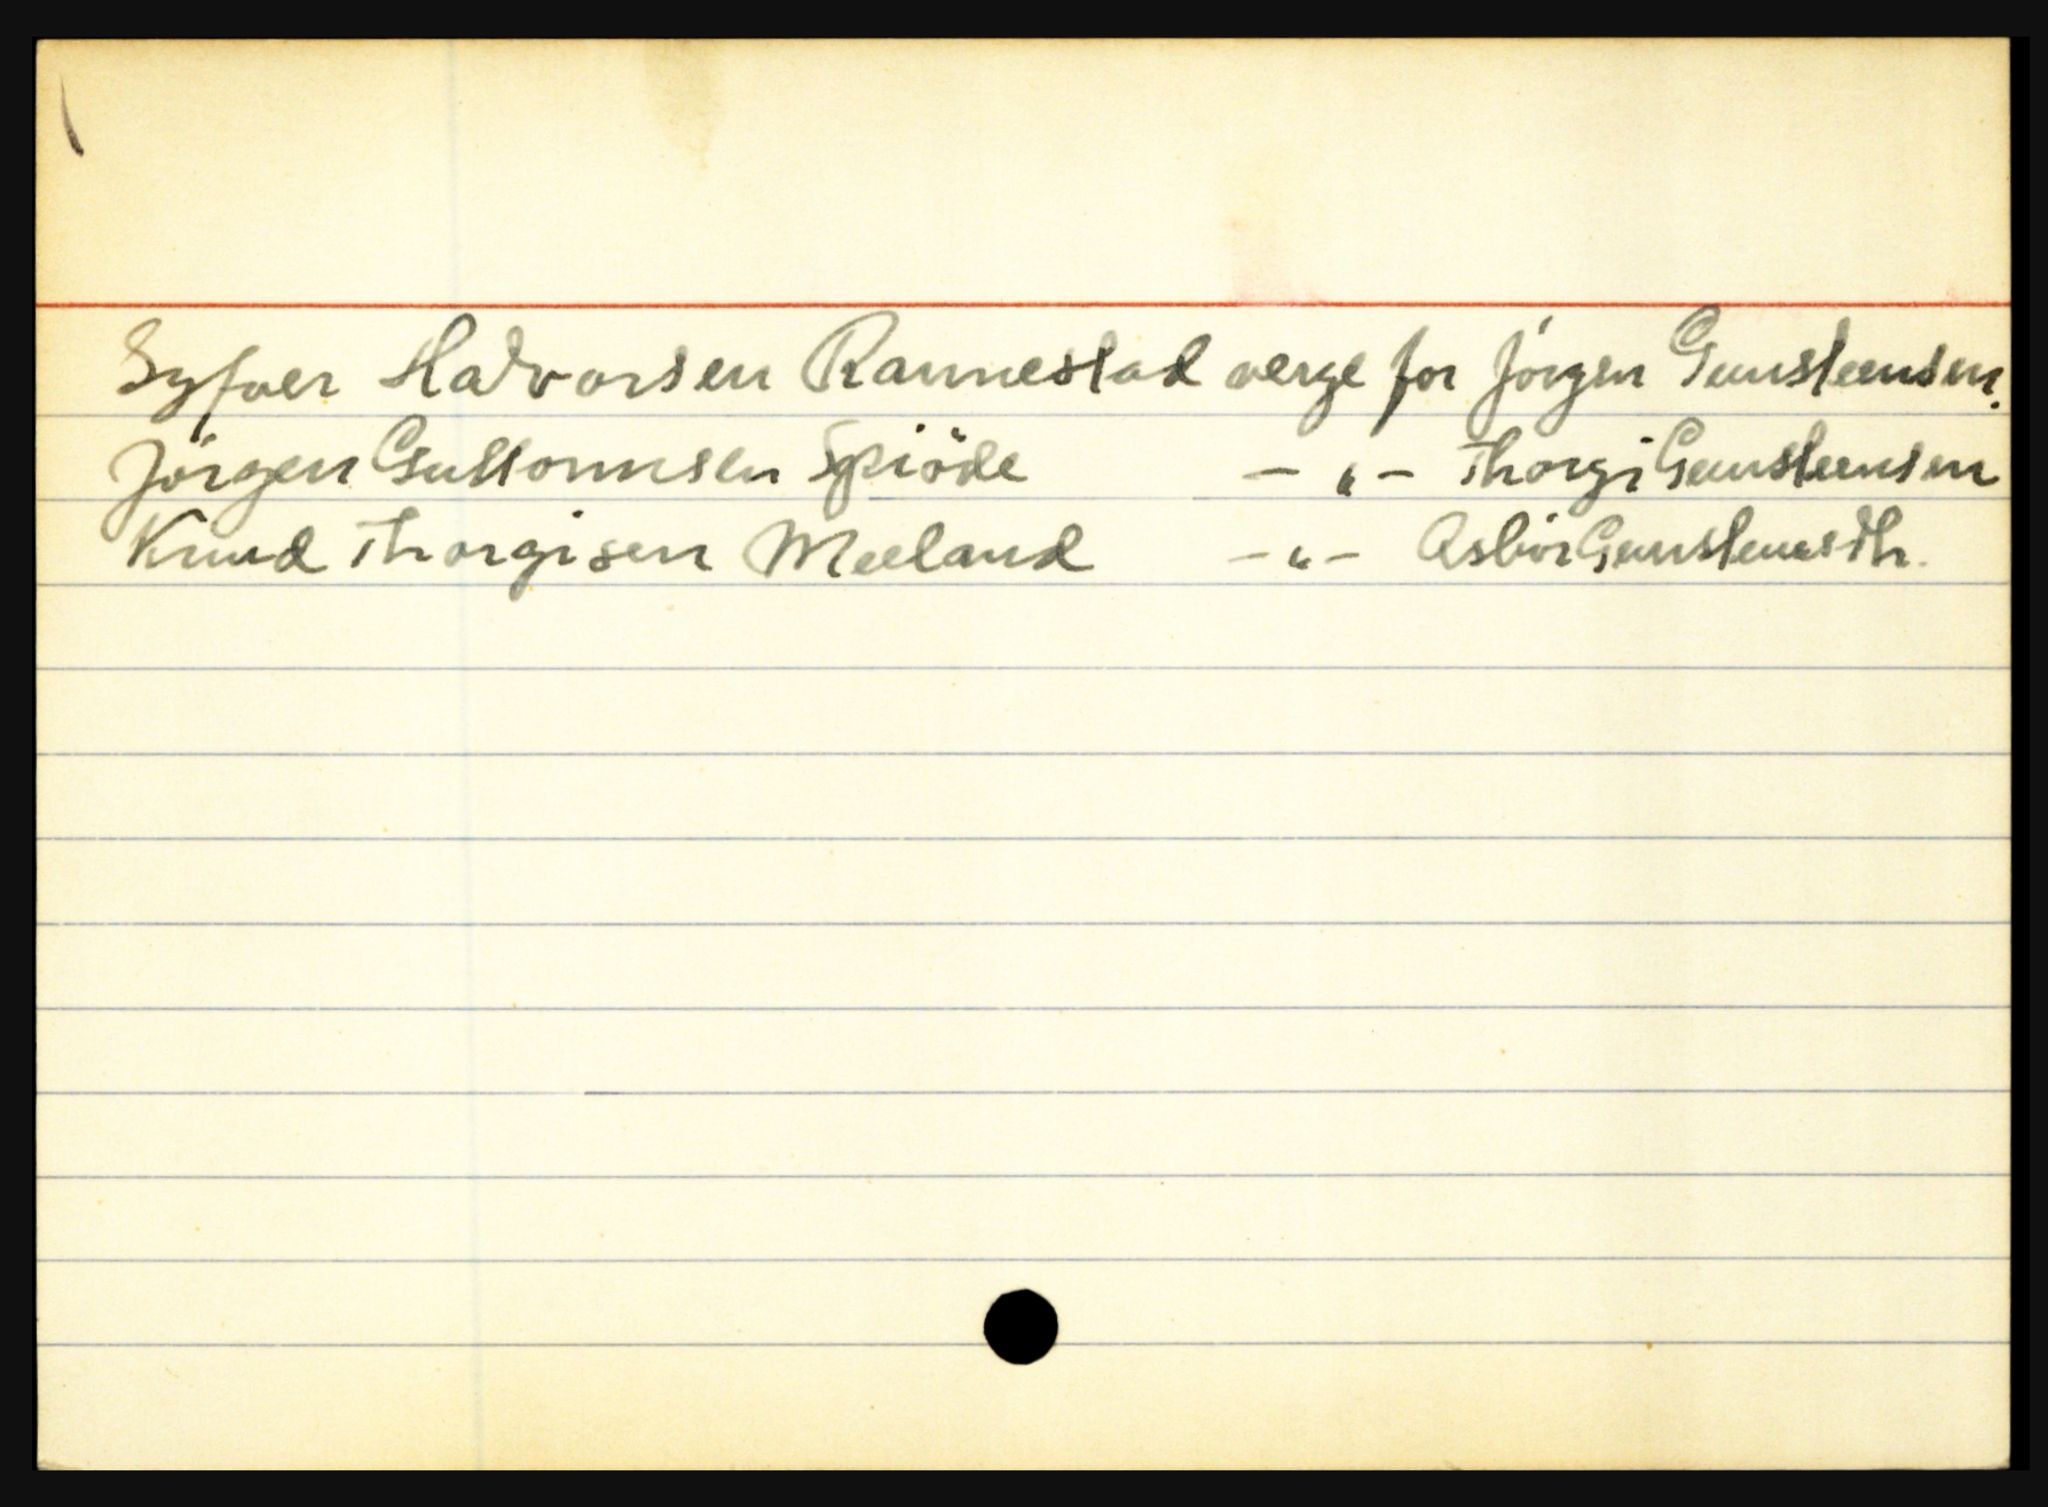 Syfver Halvorsen Rannestad verge for Jörgen Gunsteensen.
Jörgen Guttormsen Spiöde - " - Thorgi Gunsteensen
Knud Thorgisen Meeland - " - Asbiör Gunstensdtr.